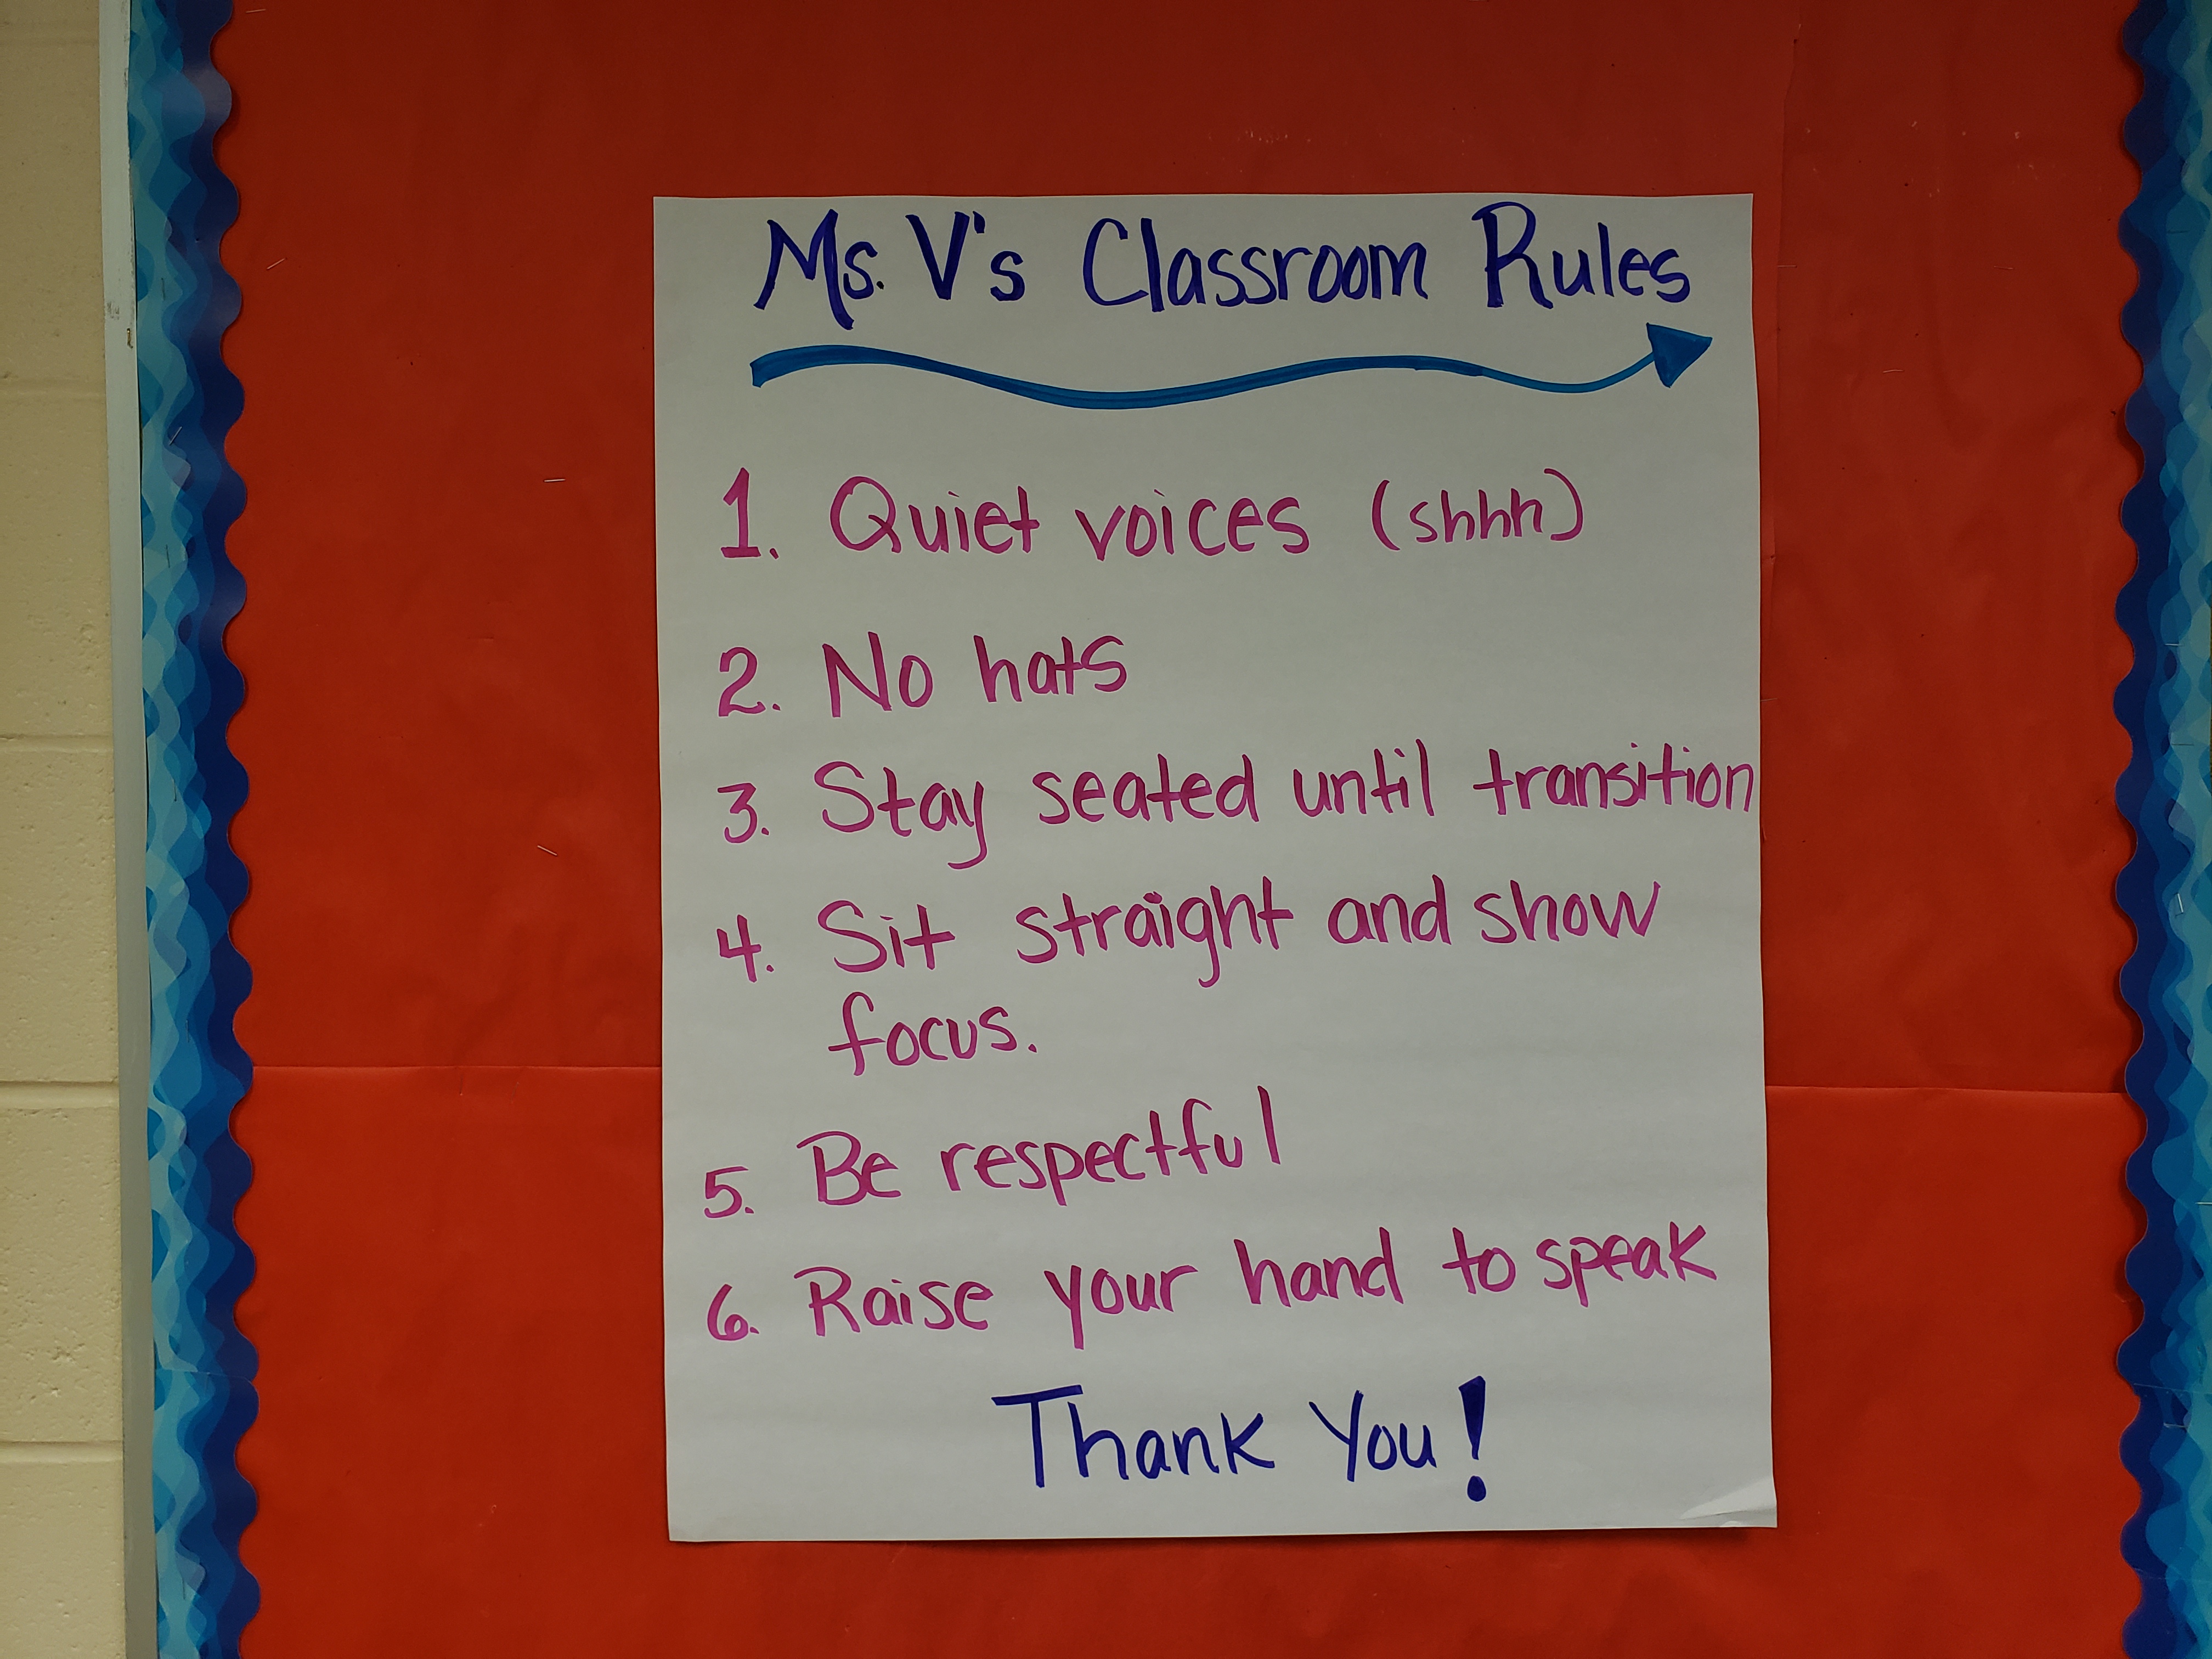 Ms. V's Classroom Rules
1. Quiet voices (shhh)
2. No hats
3. Stay seated until transition
4. Sit straight and show
focus.
5. Be respectful
6. Raise your hand to speak
Thank You!